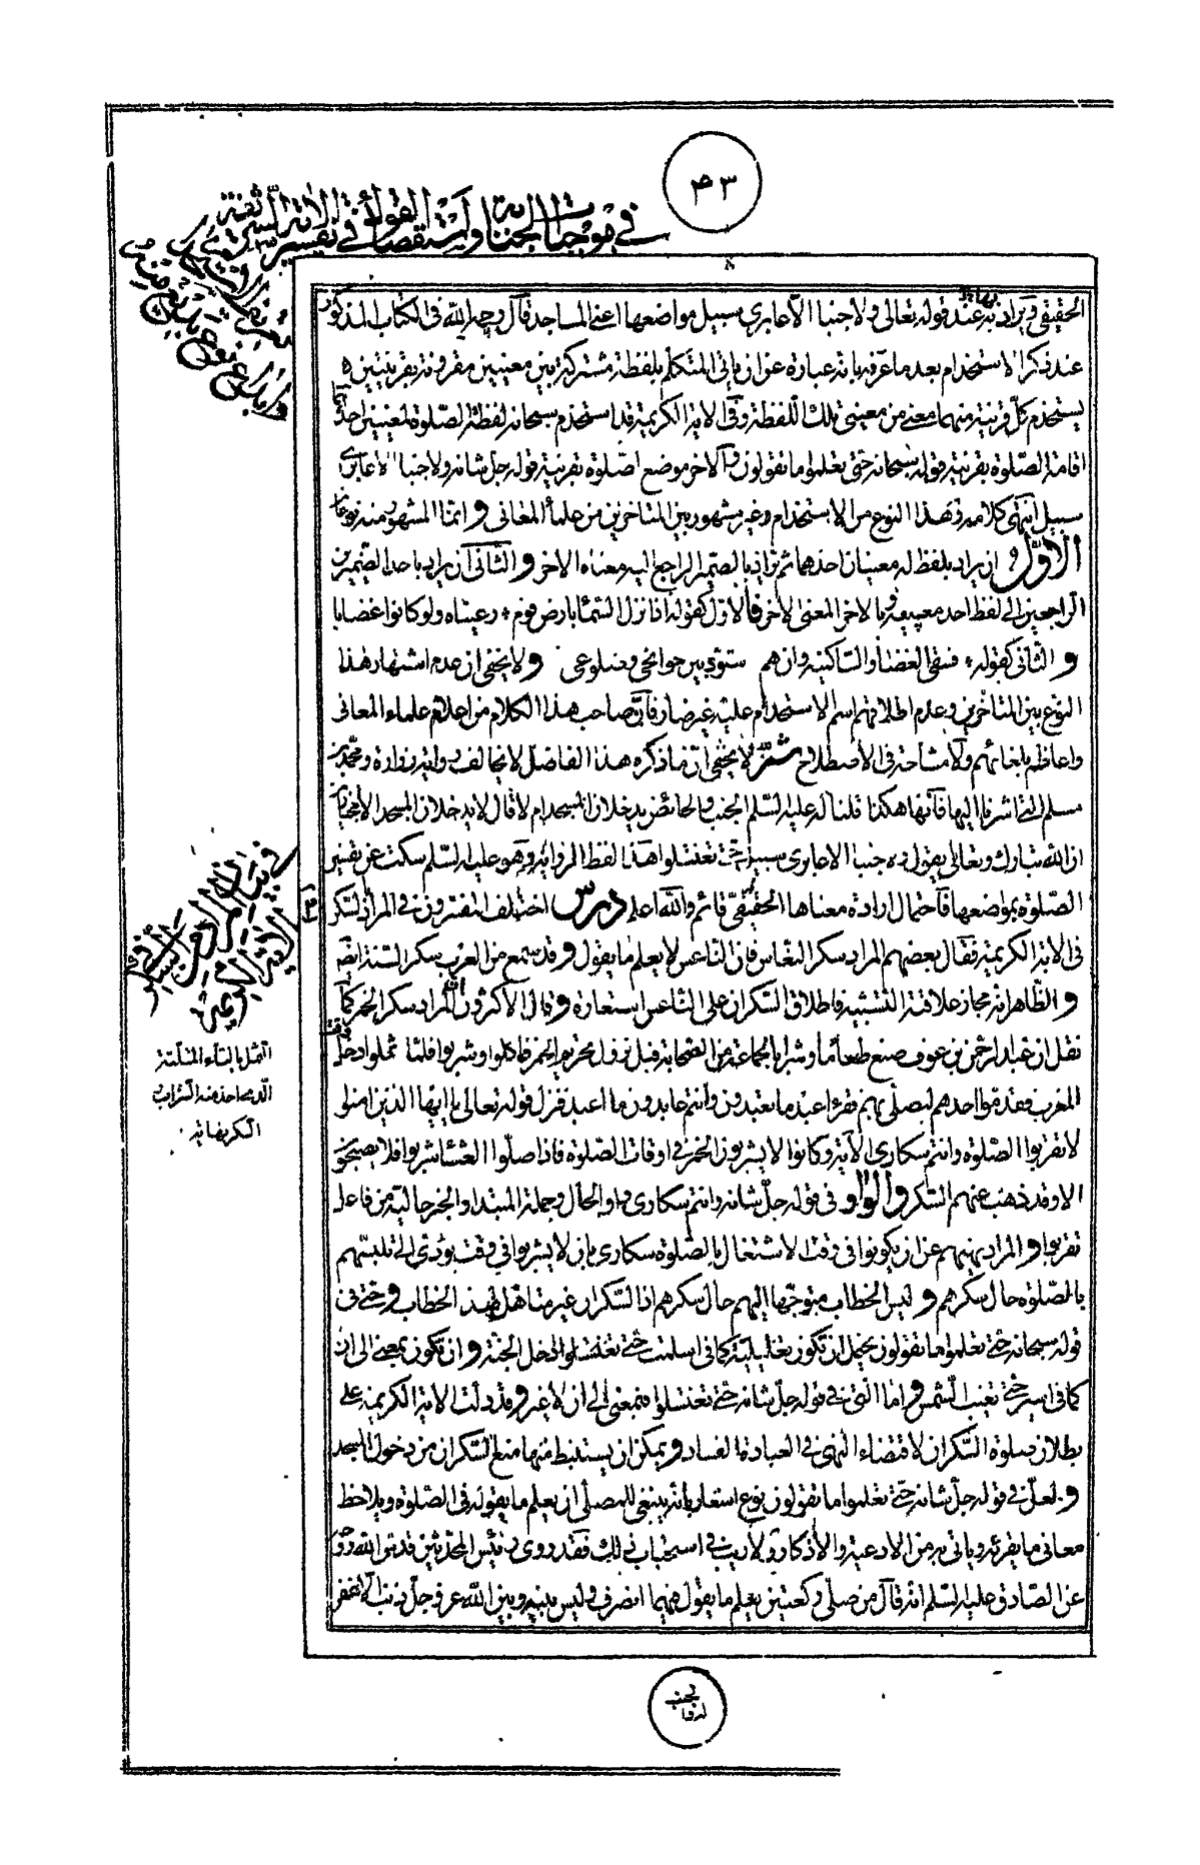 ٤٣
في موجبات الجنابة واستقصاء القول في تفسير الآية الشريفة
الحقيقى ويراد بها عند قوله تعالى ولا جنبا الا عابرى سبيل مواضعها اعنى المساجد قال رحمه الله فى الكتاب المذكور
عند ذكر الاستخدام بعد ما عرفه بانه عبارة عن ان ياتى المتكلم بلفظة مشتركة بين معنيين مقرونة بقرينتين
يستخدم كل قرينة منهما معنى من معنيى تلك اللفظة وفى الاية الكريمة قد استخدم سبحانه لفظة الصلوة لمعنيين احدهما
اقامة الصلوة بقرينة قوله سبحانه حتى تعلموا ما تقولون والاخر موضع الصلوة بقرينة قوله جل شانه ولا جنبا الا عابرى
سبيل انتهى كلامه فى هذا النوع من الاستخدام وغير مشهور بين المتاخرين من علماء المعانى وانما المشهور منه نوعان
الاول ان يراد بلفظ له معنيان احدهما ثم يراد بالضمير الراجع اليه معناه الاخر والثانى ان يراد باحد الضميرين
الراجعين الى لفظ احد معنييه وبالاخر المعنى الاخر فالاول كقوله اذا نزل السماء بارض قوم رعيناه ولو كانوا غضابا
والثانى كقوله فسقى الغضا والساكنيه وان هم شبوه بين جوانحى وضلوعى ولا يخفى ان عدم اشتهار هذا
النوع بين المتاخرين وعدم اطلاقهم اسم الاستخدام عليه غير ضار فان صاحب هذا الكلام من اعلام علماء المعانى
واعاظم بلغائهم ولا مشاحة فى الاصطلاح ثم لا يخفى ان ما ذكره هذا الفاضل لا يخالف رواية زرارة ومحمد بن
مسلم التى اشرنا اليها فانها هكذا قلنا له عليه السلم الجنب والحائض يدخلان المسجد ام لا قال لا يدخلان المسجد الا مجتازين
ان الله تبارك وتعالى يقول ولا جنبا الا عابرى سبيل حتى تغتسلوا هذا لفظ الرواية وهو عليه السلم سكت عن تفسير
الصلوة بمواضعها فاحتمال ارادة معناها الحقيقى قائم والله اعلم درس اختلف المفسرون فى المراد بالسكر
فى الاية الكريمة فقال بعضهم المراد سكر النعاس فان الناعس لا يعلم ما يقول وقد سمع من العرب سكر السنة ايضا
والظاهر انه مجاز علاقته التشبيه فاطلاق السكران على الناعس استعارة وقال الاكثرون ان المراد سكر الخمر كما
نقل ان عبد الرحمن بن عوف صنع طعاما وشرابا لجماعة من الصحابة قبل نزول تحريم الخمر فاكلوا وشربوا فلما ثملوا دخل وقت
المغرب فقدموا احدهم ليصلى بهم فقرء اعبد ما تعبدون وانتم عابدون ما اعبد فنزل قوله تعالى يا ايها الذين امنوا
لا تقربوا الصلوة وانتم سكارى الاية وكانوا لا يشربون الخمر فى اوقات الصلوة فاذا صلوا العشاء شربوا فلا يصبحون
الا وقد ذهب عنهم السكر والواو فى قوله جل شانه وانتم سكارى واو الحال وجملة المبتدا والخبر حالية من فاعل
تقربوا والمراد نهيهم عن ان يكونوا فى وقت الاشتغال بالصلوة سكارى بان لا يشربوا فى وقت يؤدى الى تلبسهم
بالصلوة حال سكرهم وليس الخطاب متوجها اليهم حال سكرهم اذ السكران غير متاهل لهذا الخطاب وحتى فى
قوله سبحانه حتى تعلموا ما تقولون يحتمل ان تكون تعليلية كما فى اسلمت حتى ادخل الجنة وان تكون بمعنى الى ان
كما فى اسير حتى تغيب الشمس واما التى فى قوله جل شانه حتى تغتسلوا فبمعنى الى ان لا غير وقد دلت الاية الكريمة على
بطلان صلوة السكران لاقتضاء النهى فى العبادة الفساد ويمكن ان يستنبط منها منع السكران من دخول المسجد
ولعل فى قوله جل شانه حتى تعلموا ما تقولون نوع اشعار بانه ينبغى للمصلى ان يعلم ما يقوله فى الصلوة ويلاحظ
معانى ما يقرئه وياتى به من الادعية والاذكار ولا ريب فى استحباب ذلك فقد روى رئيس المحدثين قدس الله روحه
عن الصادق عليه السلم انه قال من صلى ركعتين يعلم ما يقول فيهما انصرف وليس بينه وبين الله عز وجل ذنب الا غفر
فى بيان المراد من السكر فى الاية الكريمة
الثمل بالثاء المثلثة
الذى اخذ منه الشراب